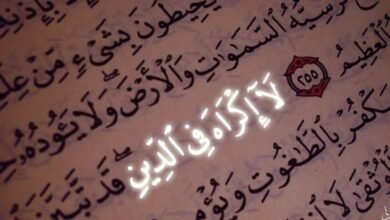 يُحِيطُونَ بِشَىْءٍ مِّنْ
كُرْسِيُّهُ السَّمَٰوَٰتِ وَالْأَرْضَ ۖ وَلَا يَـُٔودُهُۥ
الْعَظِيمُ ٢٥٥ لَآ إِكْرَاهَ فِى الدِّينِ ۖ قَد تَّبَيَّنَ
يَكْفُرْ بِالطَّٰغُوتِ وَيُؤْمِ